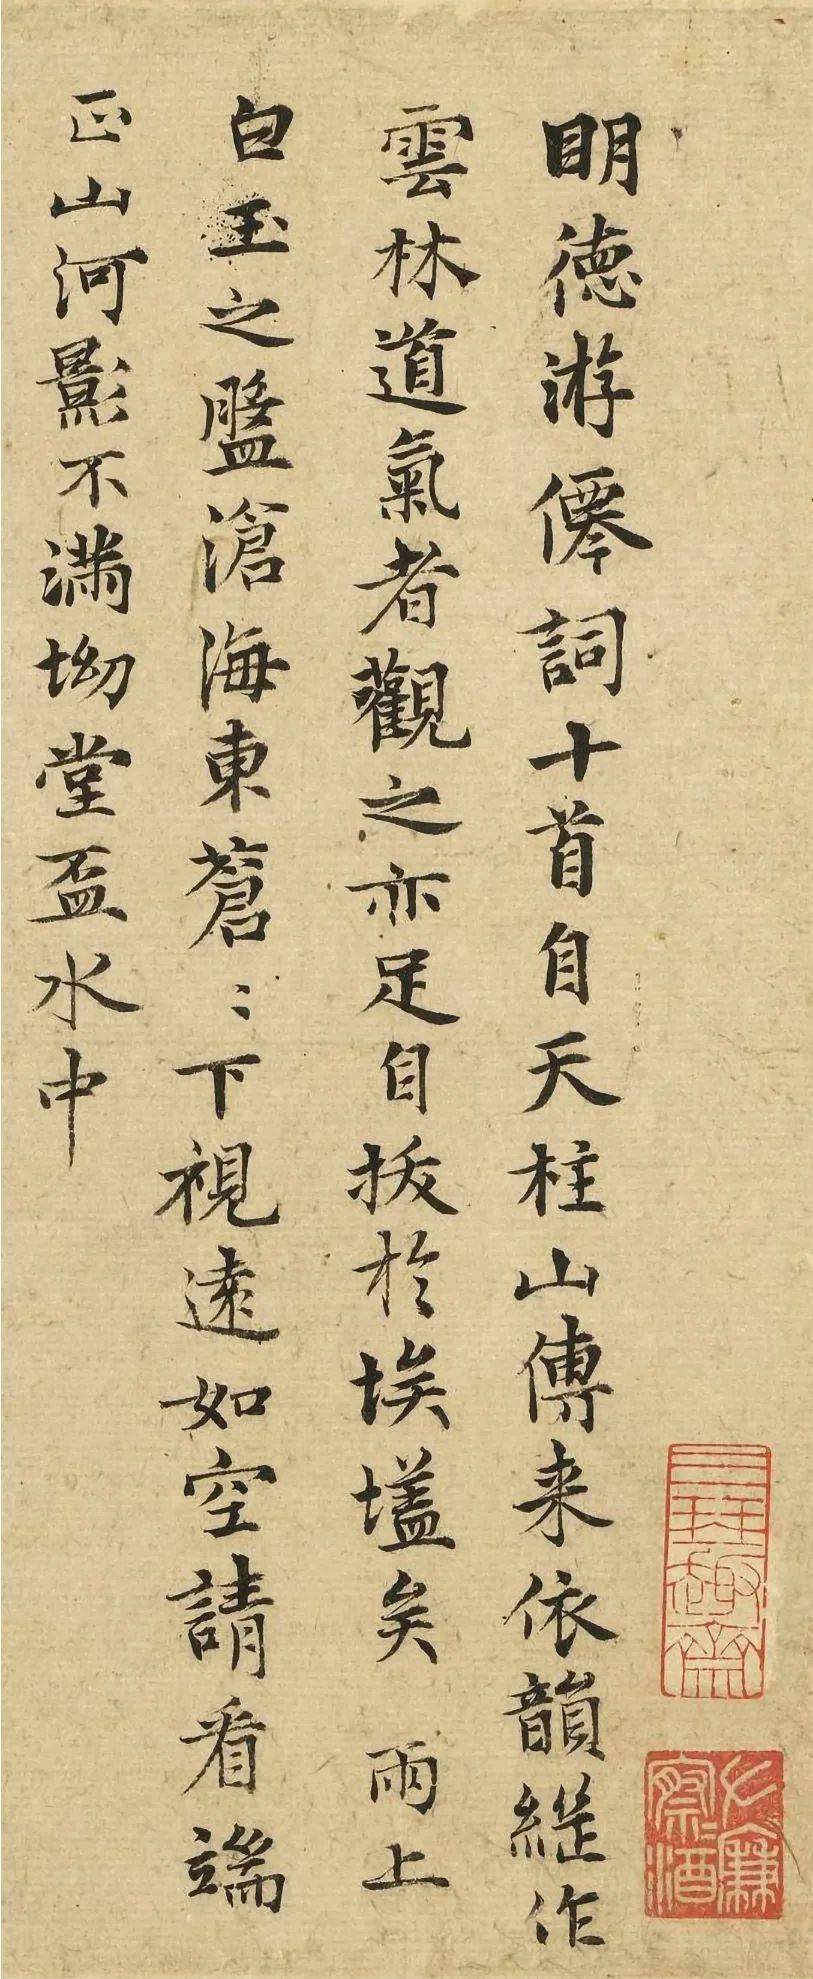 明德游僊詞十首自天柱山傳来依韻継作
雲林道氣者觀之亦足自拔於埃壒矣 雨上
白玉之盤滄海東蒼〻下視遠如空請看端
正山河影不滿坳堂盃水中
三琴趣齋